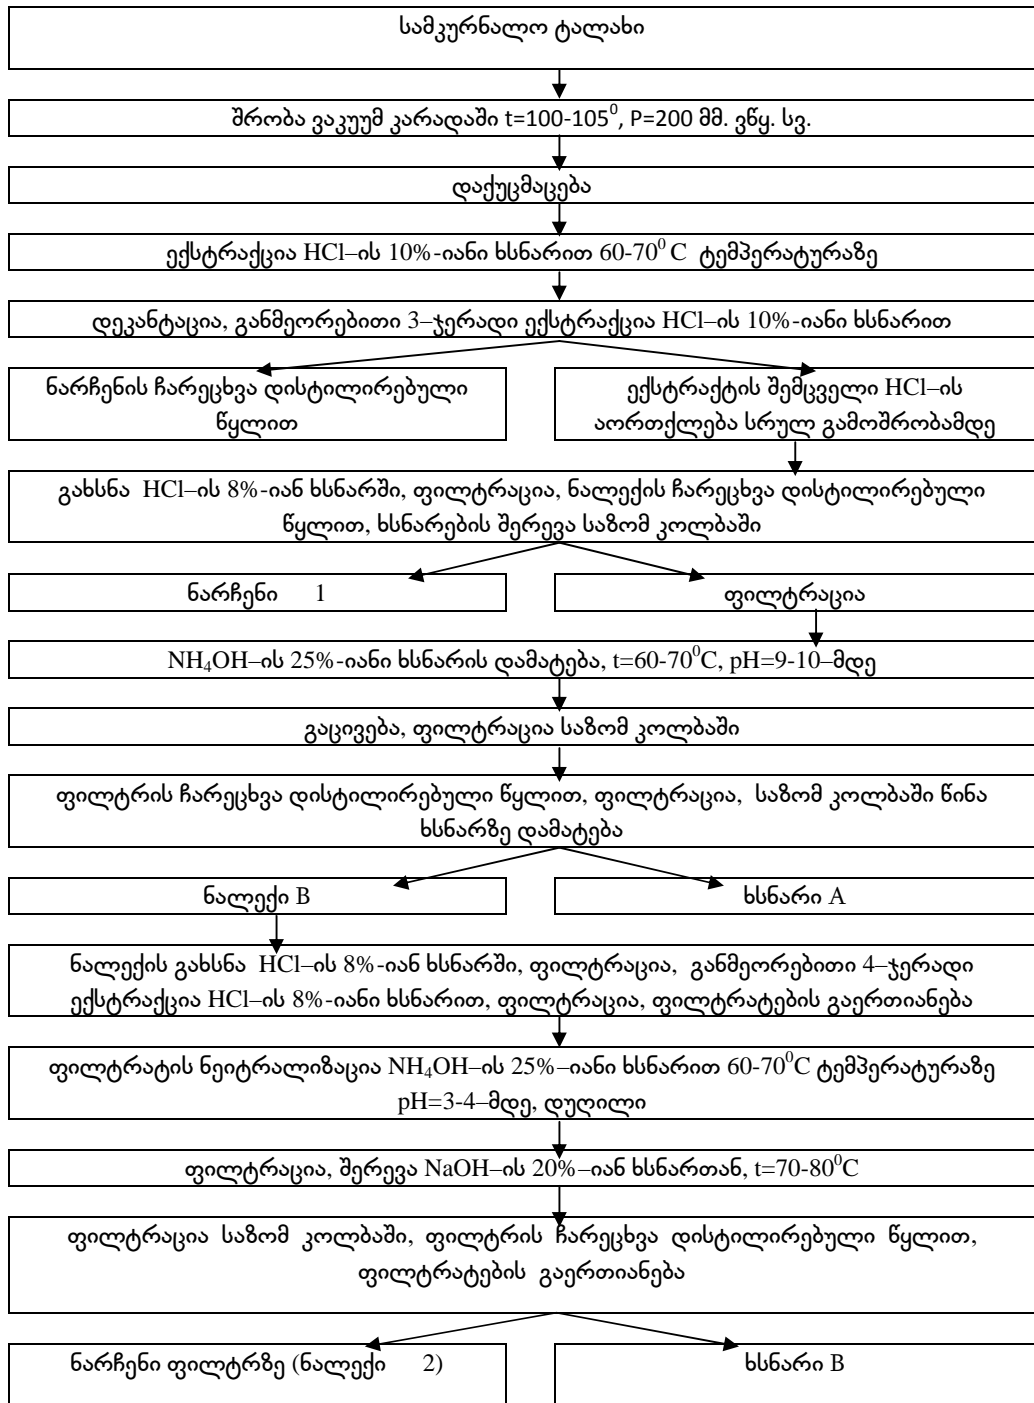 სამკურნალო ტალახი
შრობა ვაკუუმ კარადაში t=100-105⁰, P=200 მმ. ვწყ. სვ.
დაქუცმაცება
ექსტრაქცია HCl–ის 10%-იანი ხსნარით 60-70⁰ C ტემპერატურაზე
დეკანტაცია, განმეორებითი 3–ჯერადი ექსტრაქცია HCl–ის 10%-იანი ხსნარით
ნარჩენის ჩარეცხვა დისტილირებული
წყლით
ექსტრაქტის შემცველი HCl–ის
აორთქლება სრულ გამოშრობამდე
გახსნა HCl–ის 8%-იან ხსნარში, ფილტრაცია, ნალექის ჩარეცხვა დისტილირებული
წყლით, ხსნარების შერევა საზომ კოლბაში
ნარჩენი 1
ფილტრაცია
NH₄OH–ის 25%-იანი ხსნარის დამატება, t=60-70⁰C, pH=9-10–მდე
გაცივება, ფილტრაცია საზომ კოლბაში
ფილტრის ჩარეცხვა დისტილირებული წყლით, ფილტრაცია, საზომ კოლბაში წინა
ხსნარზე დამატება
ნალექი B
ხსნარი A
ნალექის გახსნა HCl–ის 8%-იან ხსნარში, ფილტრაცია, განმეორებითი 4–ჯერადი
ექსტრაქცია HCl–ის 8%-იანი ხსნარით, ფილტრაცია, ფილტრატების გაერთიანება
ფილტრატის ნეიტრალიზაცია NH₄OH–ის 25%–იანი ხსნარით 60-70⁰C ტემპერატურაზე
pH=3-4–მდე, დუღილი
ფილტრაცია, შერევა NaOH–ის 20%–იან ხსნართან, t=70-80⁰C
ფილტრაცია საზომ კოლბაში, ფილტრის ჩარეცხვა დისტილირებული წყლით,
ფილტრატების გაერთიანება
ნარჩენი ფილტრზე (ნალექი 2)
ხსნარი B